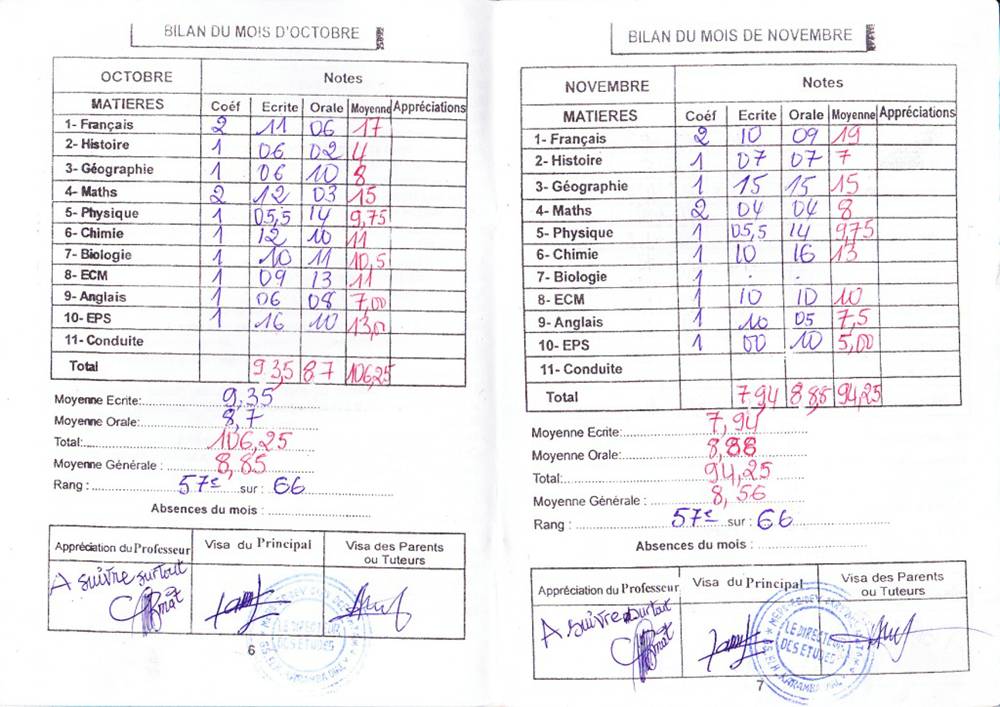 BILAN DU MOIS D'OCTOBRE
OCTOBRE Notes
MATIERES Coéf Ecrite Orale Moyenne Appréciations
1- Français 2 11 06 17
2- Histoire 1 06 02 4
3- Géographie 1 06 10 8
4- Maths 2 12 03 15
5- Physique 1 05,5 14 9,75
6- Chimie 1 12 10 11
7- Biologie 1 10 11 10,5
8- ECM 1 09 13 11
9- Anglais 1 06 08 7,00
10- EPS 1 16 10 13,00
11- Conduite
Total 93,5 87 106,25
Moyenne Ecrite: 9,35
Moyenne Orale: 8,7
Total: 106,25
Moyenne Générale : 8,85
Rang : 57e sur : 66
Absences du mois :
Appréciation du Professeur Visa du Principal Visa des Parents ou Tuteurs
A suivre surtout
6
BILAN DU MOIS DE NOVEMBRE
NOVEMBRE Notes
MATIERES Coéf Ecrite Orale Moyenne Appréciations
1- Français 2 10 09 19
2- Histoire 1 07 07 7
3- Géographie 1 15 15 15
4- Maths 2 04 04 8
5- Physique 1 05,5 14 9,75
6- Chimie 1 10 16 13
7- Biologie 1 . .
8- ECM 1 10 10 10
9- Anglais 1 10 05 7,5
10- EPS 1 00 10 5,00
11- Conduite
Total 7,94 8,88 94,25
Moyenne Ecrite: 7,94
Moyenne Orale: 8,88
Total: 94,25
Moyenne Générale : 8,56
Rang : 57e sur : 66
Absences du mois :
Appréciation du Professeur Visa du Principal Visa des Parents ou Tuteurs
A suivre surtout
LE DIRECTEUR
DES ETUDES
7